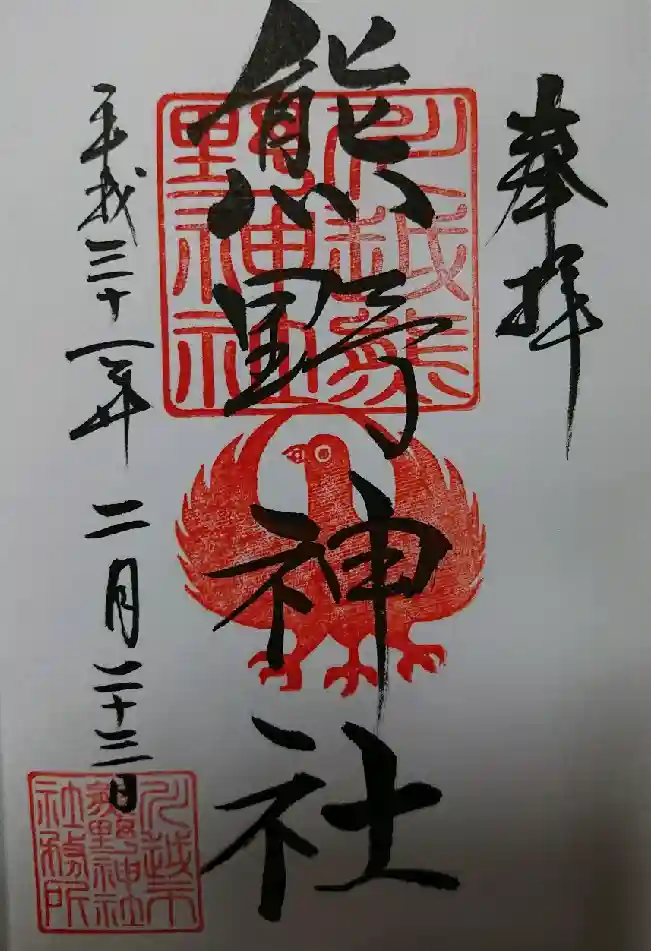 奉拝
熊野神社
川越熊
野神社
平成三十一年 二月二十三日
川越市
熊野神社
社務所